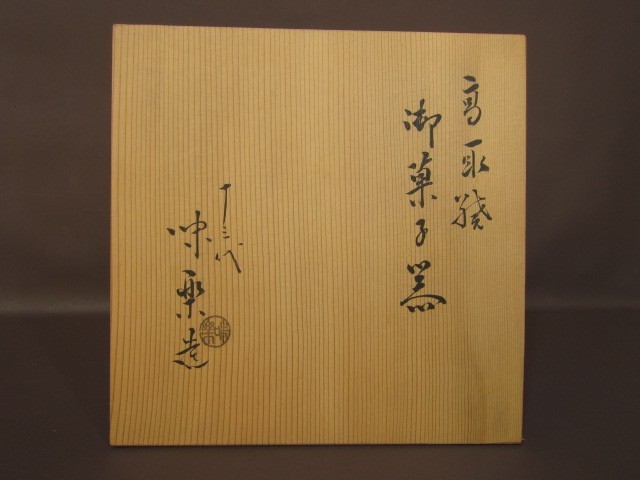 高取焼
御菓子器
十三代
味楽造
味楽